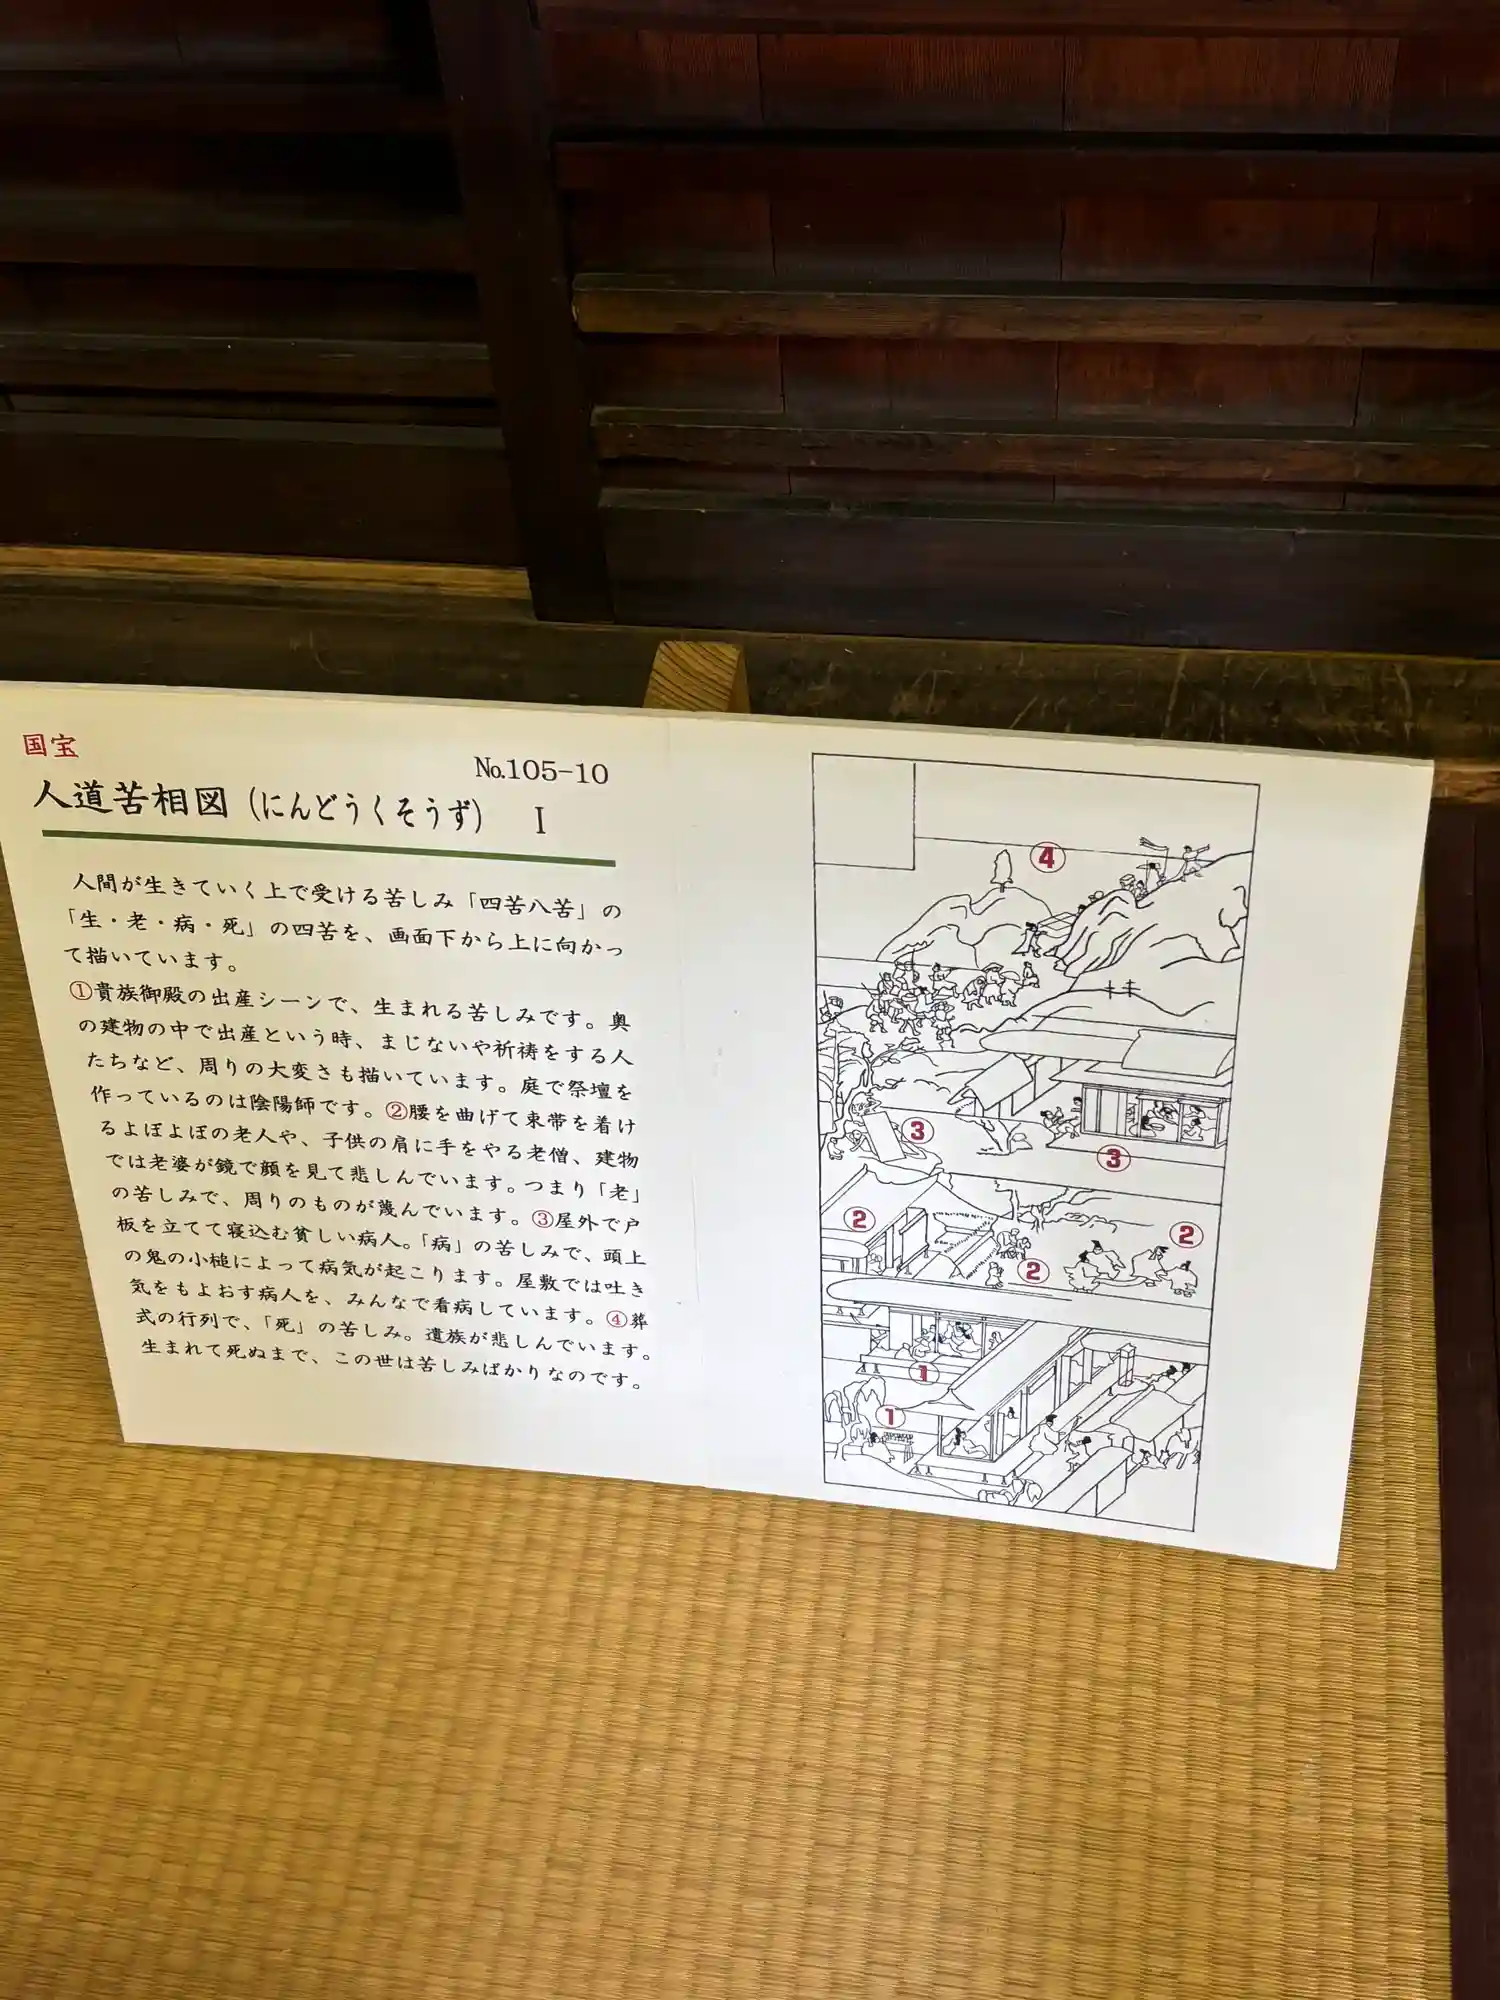 国宝
No.105-10
人道苦相図(にんどうくそうず) I
人間が生きていく上で受ける苦しみ「四苦八苦」の
「生・老・病・死」の四苦を、画面下から上に向かっ
て描いています。
①貴族御殿の出産シーンで、生まれる苦しみです。奥
の建物の中で出産という時、まじないや祈祷をする人
たちなど、周りの大変さも描いています。庭で祭壇を
作っているのは陰陽師です。②腰を曲げて束帯を着け
るよぼよぼの老人や、子供の肩に手をやる老僧、建物
では老婆が鏡で顔を見て悲しんでいます。つまり「老」
の苦しみで、周りのものが蔑んでいます。③屋外で戸
板を立てて寝込む貧しい病人。「病」の苦しみで、頭上
の鬼の小槌によって病気が起こります。屋敷では吐き
気をもよおす病人を、みんなで看病しています。④葬
式の行列で、「死」の苦しみ。遺族が悲しんでいます。
生まれて死ぬまで、この世は苦しみばかりなのです。
④
③
③
②
②
②
①
①